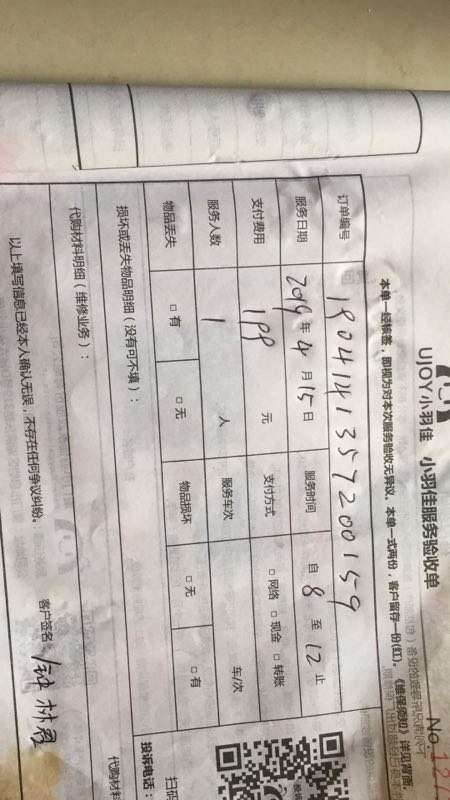 UJOY小羽佳 小羽佳服务验收单
NO 12
本单一经核签，即视为对本次服务验收无异议。本单一式两份，客户留存一份(红)。
详见背面。
订单编号 1904141357200159
服务日期 2019年4月15日 服务时间 自8至12止
支付费用 199 元 支付方式 □网络 □现金 □转账
服务人数 1 人 服务车次 车/次
物品丢失 □有 □无 物品损坏 □无 □有
损坏或丢失物品明细（没有可不填）：
代购材料明细（维修业务）： 代购材料
以上填写信息已经本人确认无误，不存在任何争议纠纷。
客户签名
扫码
投诉电话：